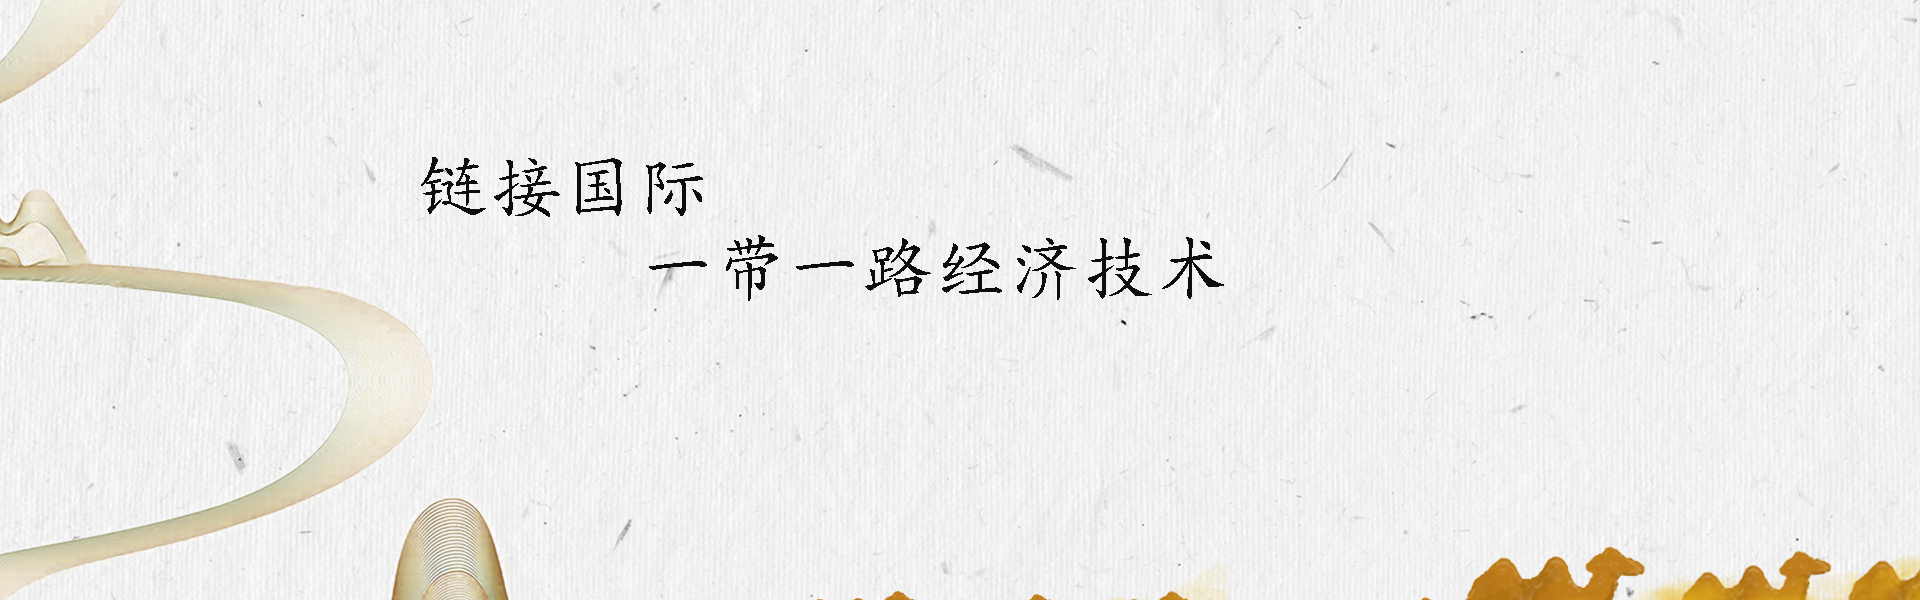 链接国际
一带一路经济技术